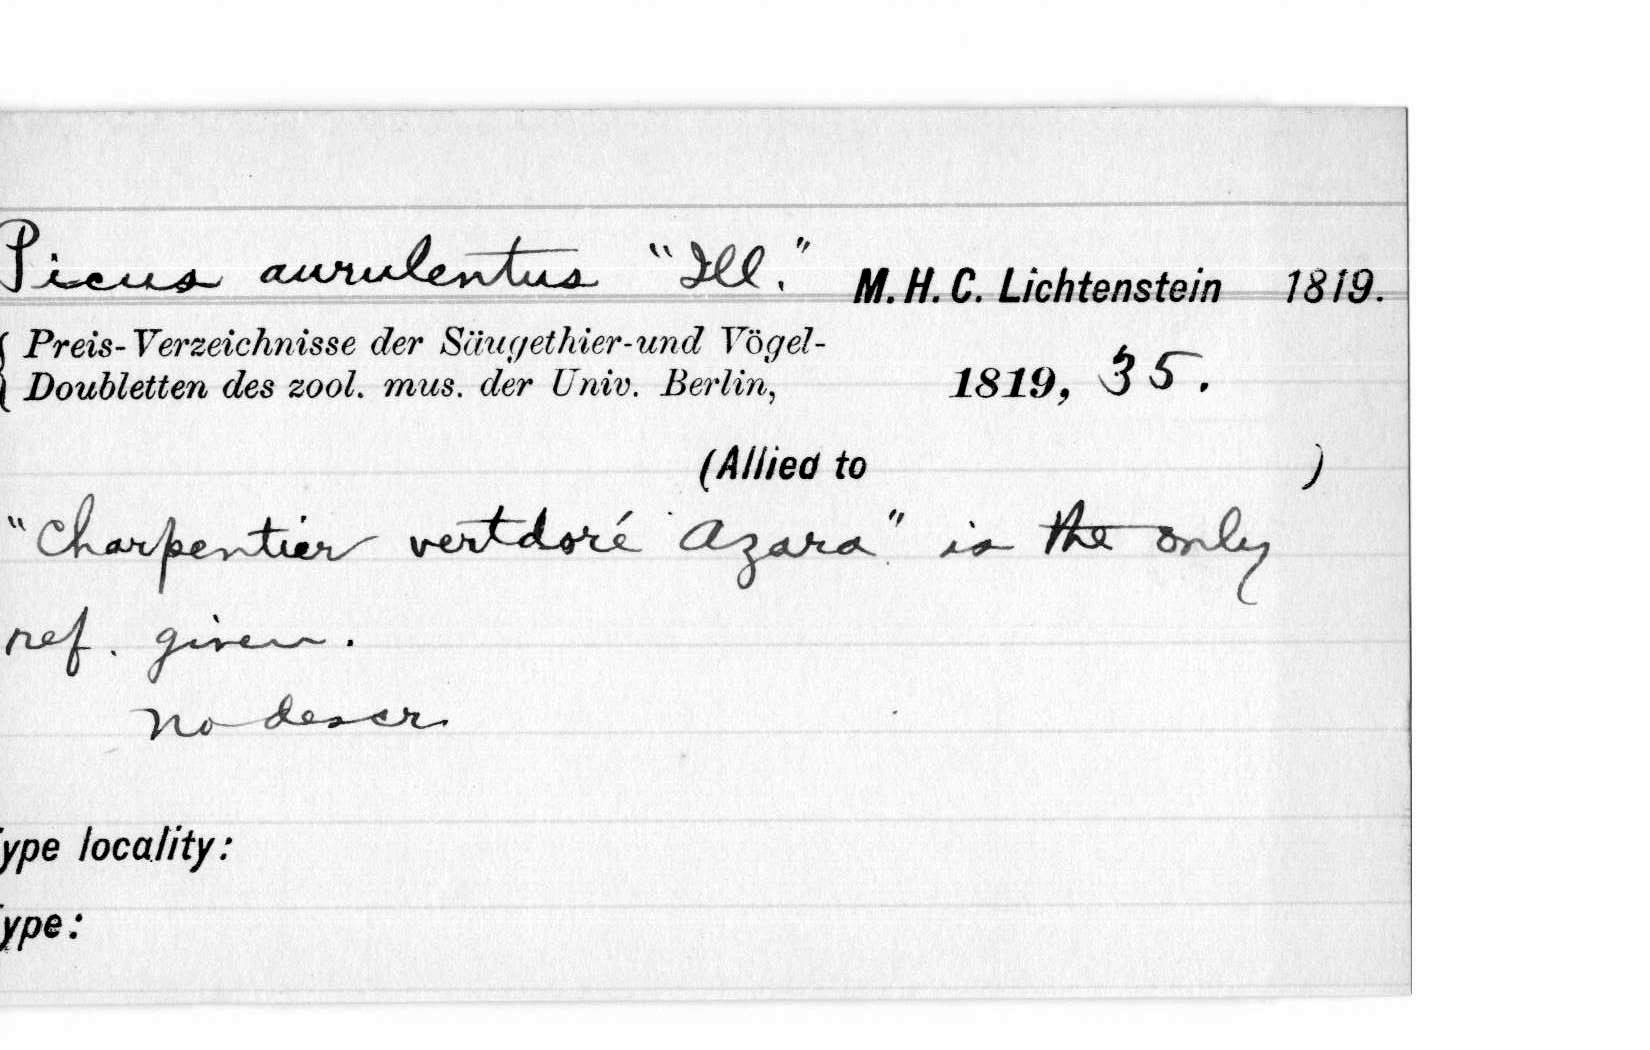 Picus aurulentus "Ill." M. H. C. Lichtenstein 1819.
{ Preis-Verzeichnisse der Säugethier-und Vögel-
Doubletten des zool. mus. der Univ. Berlin, 1819, 35.
(Allied to )
"Charpentier vertdoré Azara" is the only
ref. given.
No descr.
ype locality:
ype: